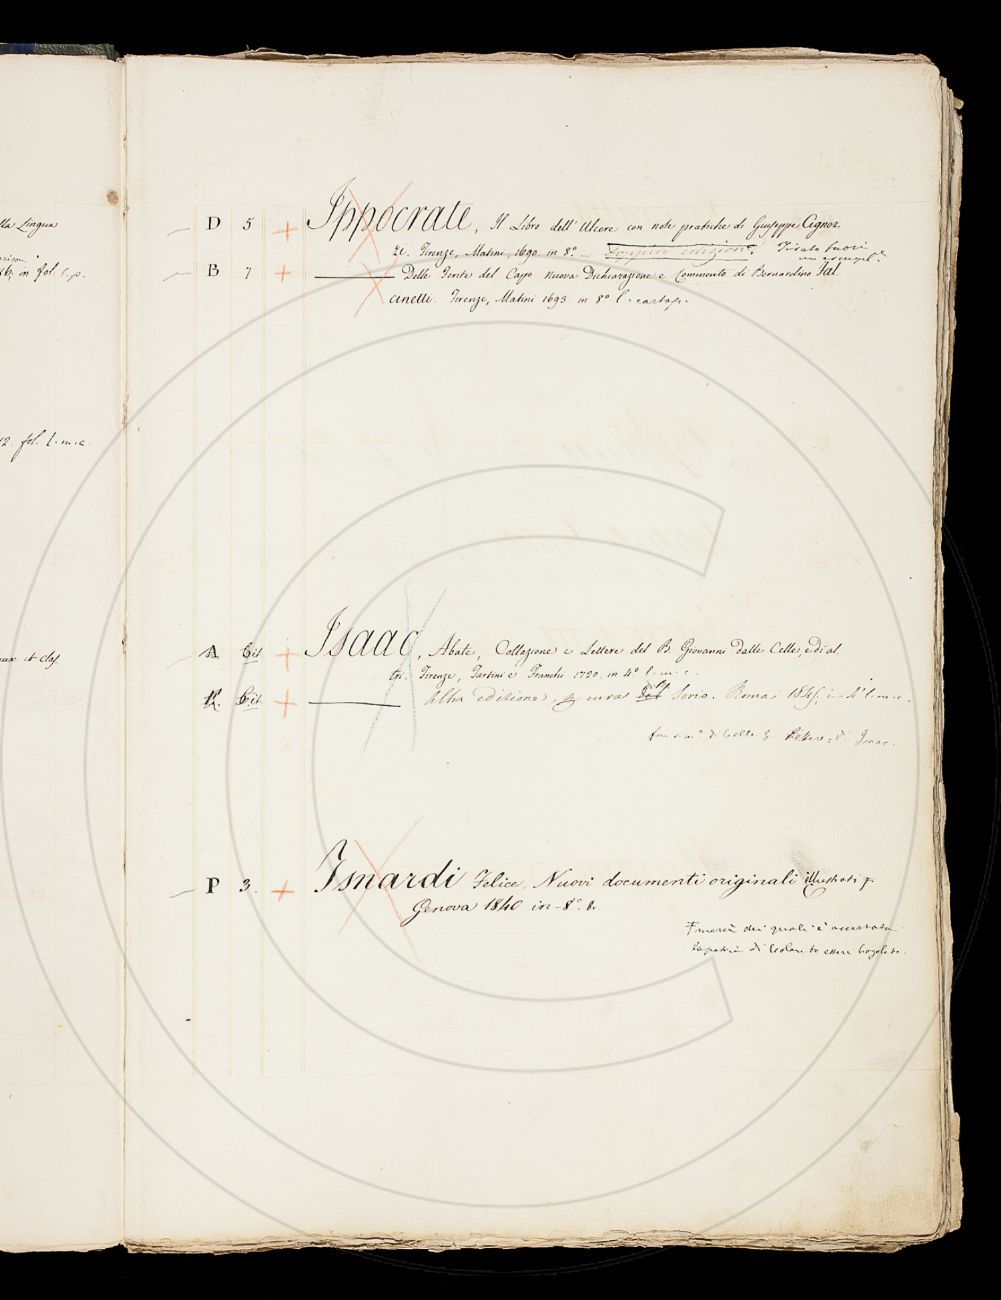 lla Lingua
in fol. l.p.
12. fol. l.m.c.
eux et clas
D 5 + Ippocrate, Il Libro dell' Ulcere con note pratiche di Giuseppe Cignoz-
zi. Firenze, Matini, 1690 in 8°. — Doppia edizion.e Tirato fuori
un esempl.e
B 7 + ——— Delle Ferite del Capo nuova Dichiarazione e Commento di Bernardino Fal-
cinelli. Firenze, Matini 1693 in 8° l. cartap.
A Cit + Isaac, Abate, Collazione e Lettere del B. Giovanni dalle Celle, e di al-
tri. Firenze, Tartini e Franchi 1720. in 4° l. m. c.
Cit + ——— Altra edizione, a cura Sorio. Roma 1845, in 4° l. m. c.
di Celle Lettere di Isaac.
P 3. + Isnardi Felice. Nuovi documenti originali illustrati
Genova 1840 in-8°. br.
mercè dei quali è accertata
la patria di Colombo essere Cogoleto.